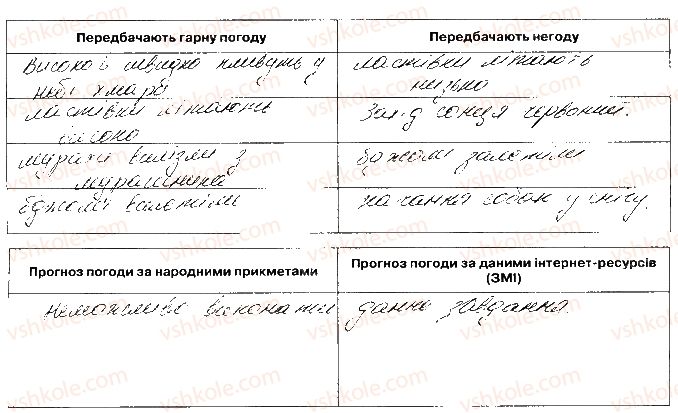 Передбачають гарну погоду
Передбачають негоду
Високо й швидко пливуть у
небі хмари
ластівки літають
низько
ластівки літають
високо
Захід сонця червоний.
мурахи вилізли з
мурашника
бджоли залетіли
бджоли вилетіли
качання собак у снігу.
Прогноз погоди за народними прикметами
Прогноз погоди за даними інтернет-ресурсів
(ЗМІ)
Неможливо виконати дання завдання.
vshkole.com